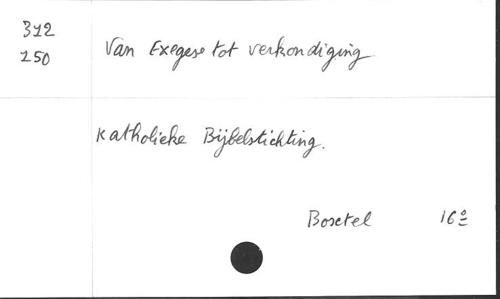 312 Van Exegese tot verkondiging
150
Katholieke Bijbelstichting.
Boxtel 16º